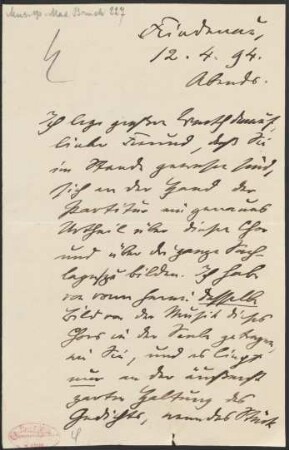 Mus. ep. Max Bruch 227
Friedenau,
12. 4. 94.
Abends.
Ich lege großen Werth darauf,
lieber Freund, daß Sie
im Stande gewesen sind,
sich an der Hand der
Partitur ein genaues
Urtheil über diesen Chor
und über die ganze Sach-
lage zu bilden. Ich habe
von vorn herein dasselbe
Bild von der Musik dieses
Chors in der Seele getragen,
wie Sie, und es liegt
nur an der äußerst
zarten Haltung des
Gedichts, wenn das Stück